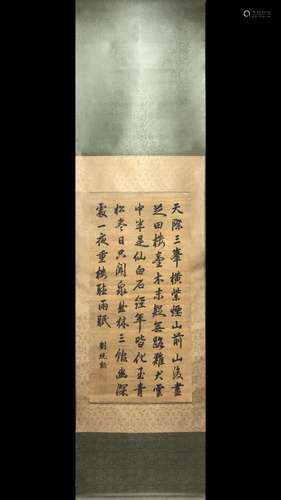 天際三峯橫紫煙山前山後盡
芝田樓臺木末疑無路雞犬雲
中半是仙白石經年皆化玉青
松冬日只聞泉華林三館幽深
處一夜重樓聽雨眠
劉統勳